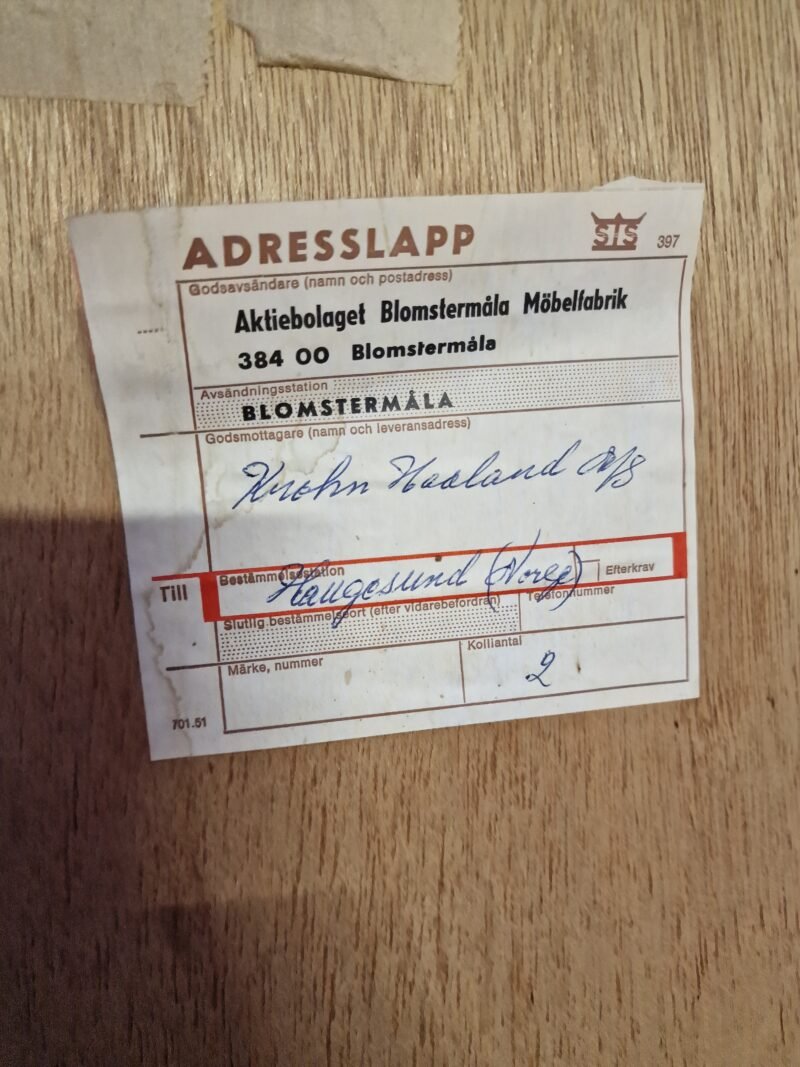 ADRESSLAPP
STS 397
Godsavsändare (namn och postadress)
Aktiebolaget Blomstermåla Möbelfabrik
384 00 Blomstermåla
Avsändningsstation
BLOMSTERMÅLA
Godsmottagare (namn och leveransadress)
Krohn Haaland A/S
Till
Bestämmelsestation
Efterkrav
Haugesund (Norge)
Slutlig bestämmelseort (efter vidarebefordran)
Telefonnummer
Märke, nummer
Kolliantal
2
701.51